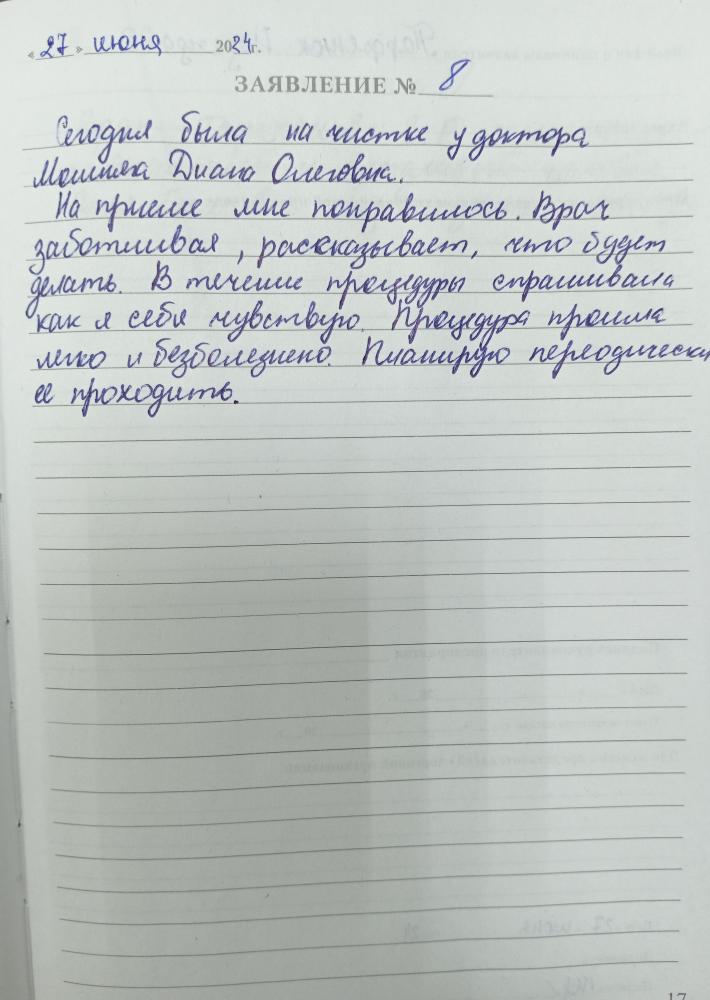 « 27 » июня 2024г.
ЗАЯВЛЕНИЕ № 8
Сегодня была на чистке у доктора
Диана Олеговна.
На приеме мне понравилось. Врач
заботливая, рассказывает, что будет
делать. В течение процедуры спрашивала
как я себя чувствую. Процедура прошла
легко и безболезнено. Планирую переодически
ее проходить.
17